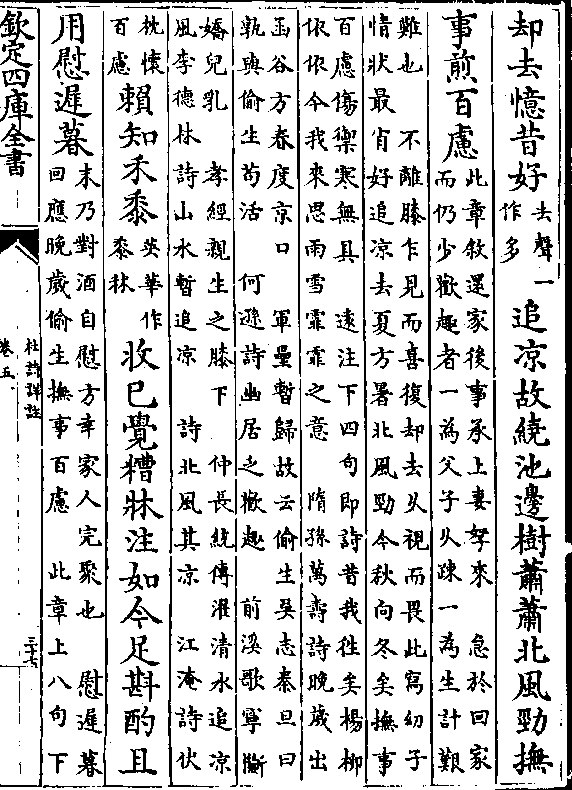 却去憶昔好去聲一作多追涼故繞池邊樹蕭蕭北風勁撫
事煎百慮
此章敘還家後事承上妻孥來　急於回家
而仍少歡趣者一為父子久踈一為生計艱
難也　不離膝乍見而喜復却去久視而畏此寫幼子
情狀最肖好追涼去夏方暑北風勁今秋向冬矣撫事
百慮傷禦寒無具　遠注下四句即詩昔我往矣楊柳
依依今我來思雨雪霏霏之意　隋孫萬壽詩晚歲出
函谷方春度京口　軍壘暫歸故云偷生吳志秦旦曰
孰與偷生苟活　何遜詩幽居乏歡趣　前溪歌寧斷
嬌兒乳　孝經親生之膝下　仲長統傳濯清水追涼
風李德林詩山水暫追涼　詩北風其涼　江淹詩伏
枕懷百慮
賴知禾黍英華作黍秫收已覺糟牀注如今足斟酌且
用慰遲暮
末乃對酒自慰方幸家人完聚也　慰遲暮
回應晚歲偷生撫事百慮　此章上八句下
欽定四庫全書
杜詩詳註
卷五
三十七